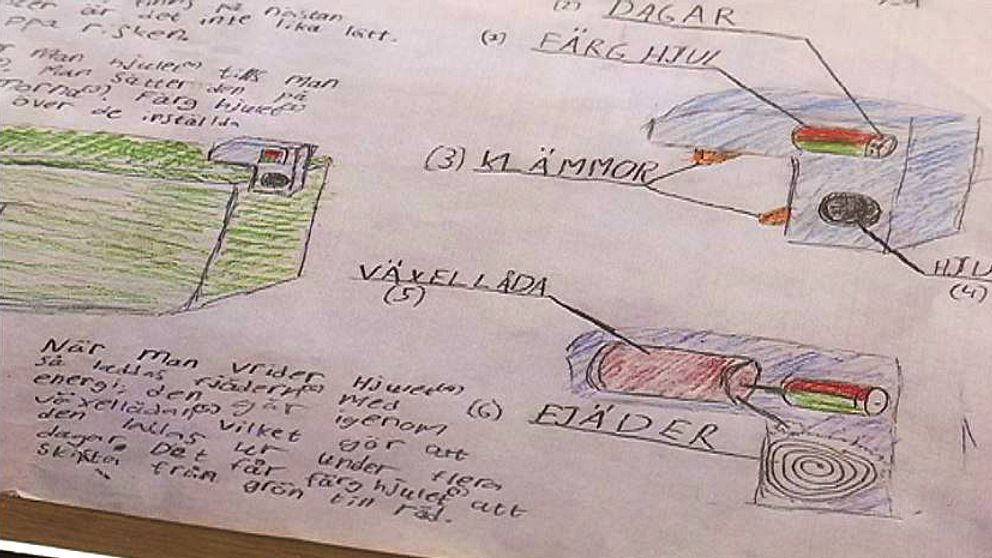 på nästan
är det inte lika lätt.
ppa risken.
man hjulet(4) tills man
man sätter den på
Färg hjulet(2)
över de inställda
DAGAR
(2) FÄRG HJUL
(3) KLÄMMOR
HJU
(4)
VÄXELLÅDA
(5)
(6) FJÄDER
När man vrider Hjulet(4)
så laddas fjädern(6) med
energi, den går igenom
växellådan(5) vilket gör att
den laddas ur under flera
dagar. Det får färghjulet(2) att
skifta från grön till röd.